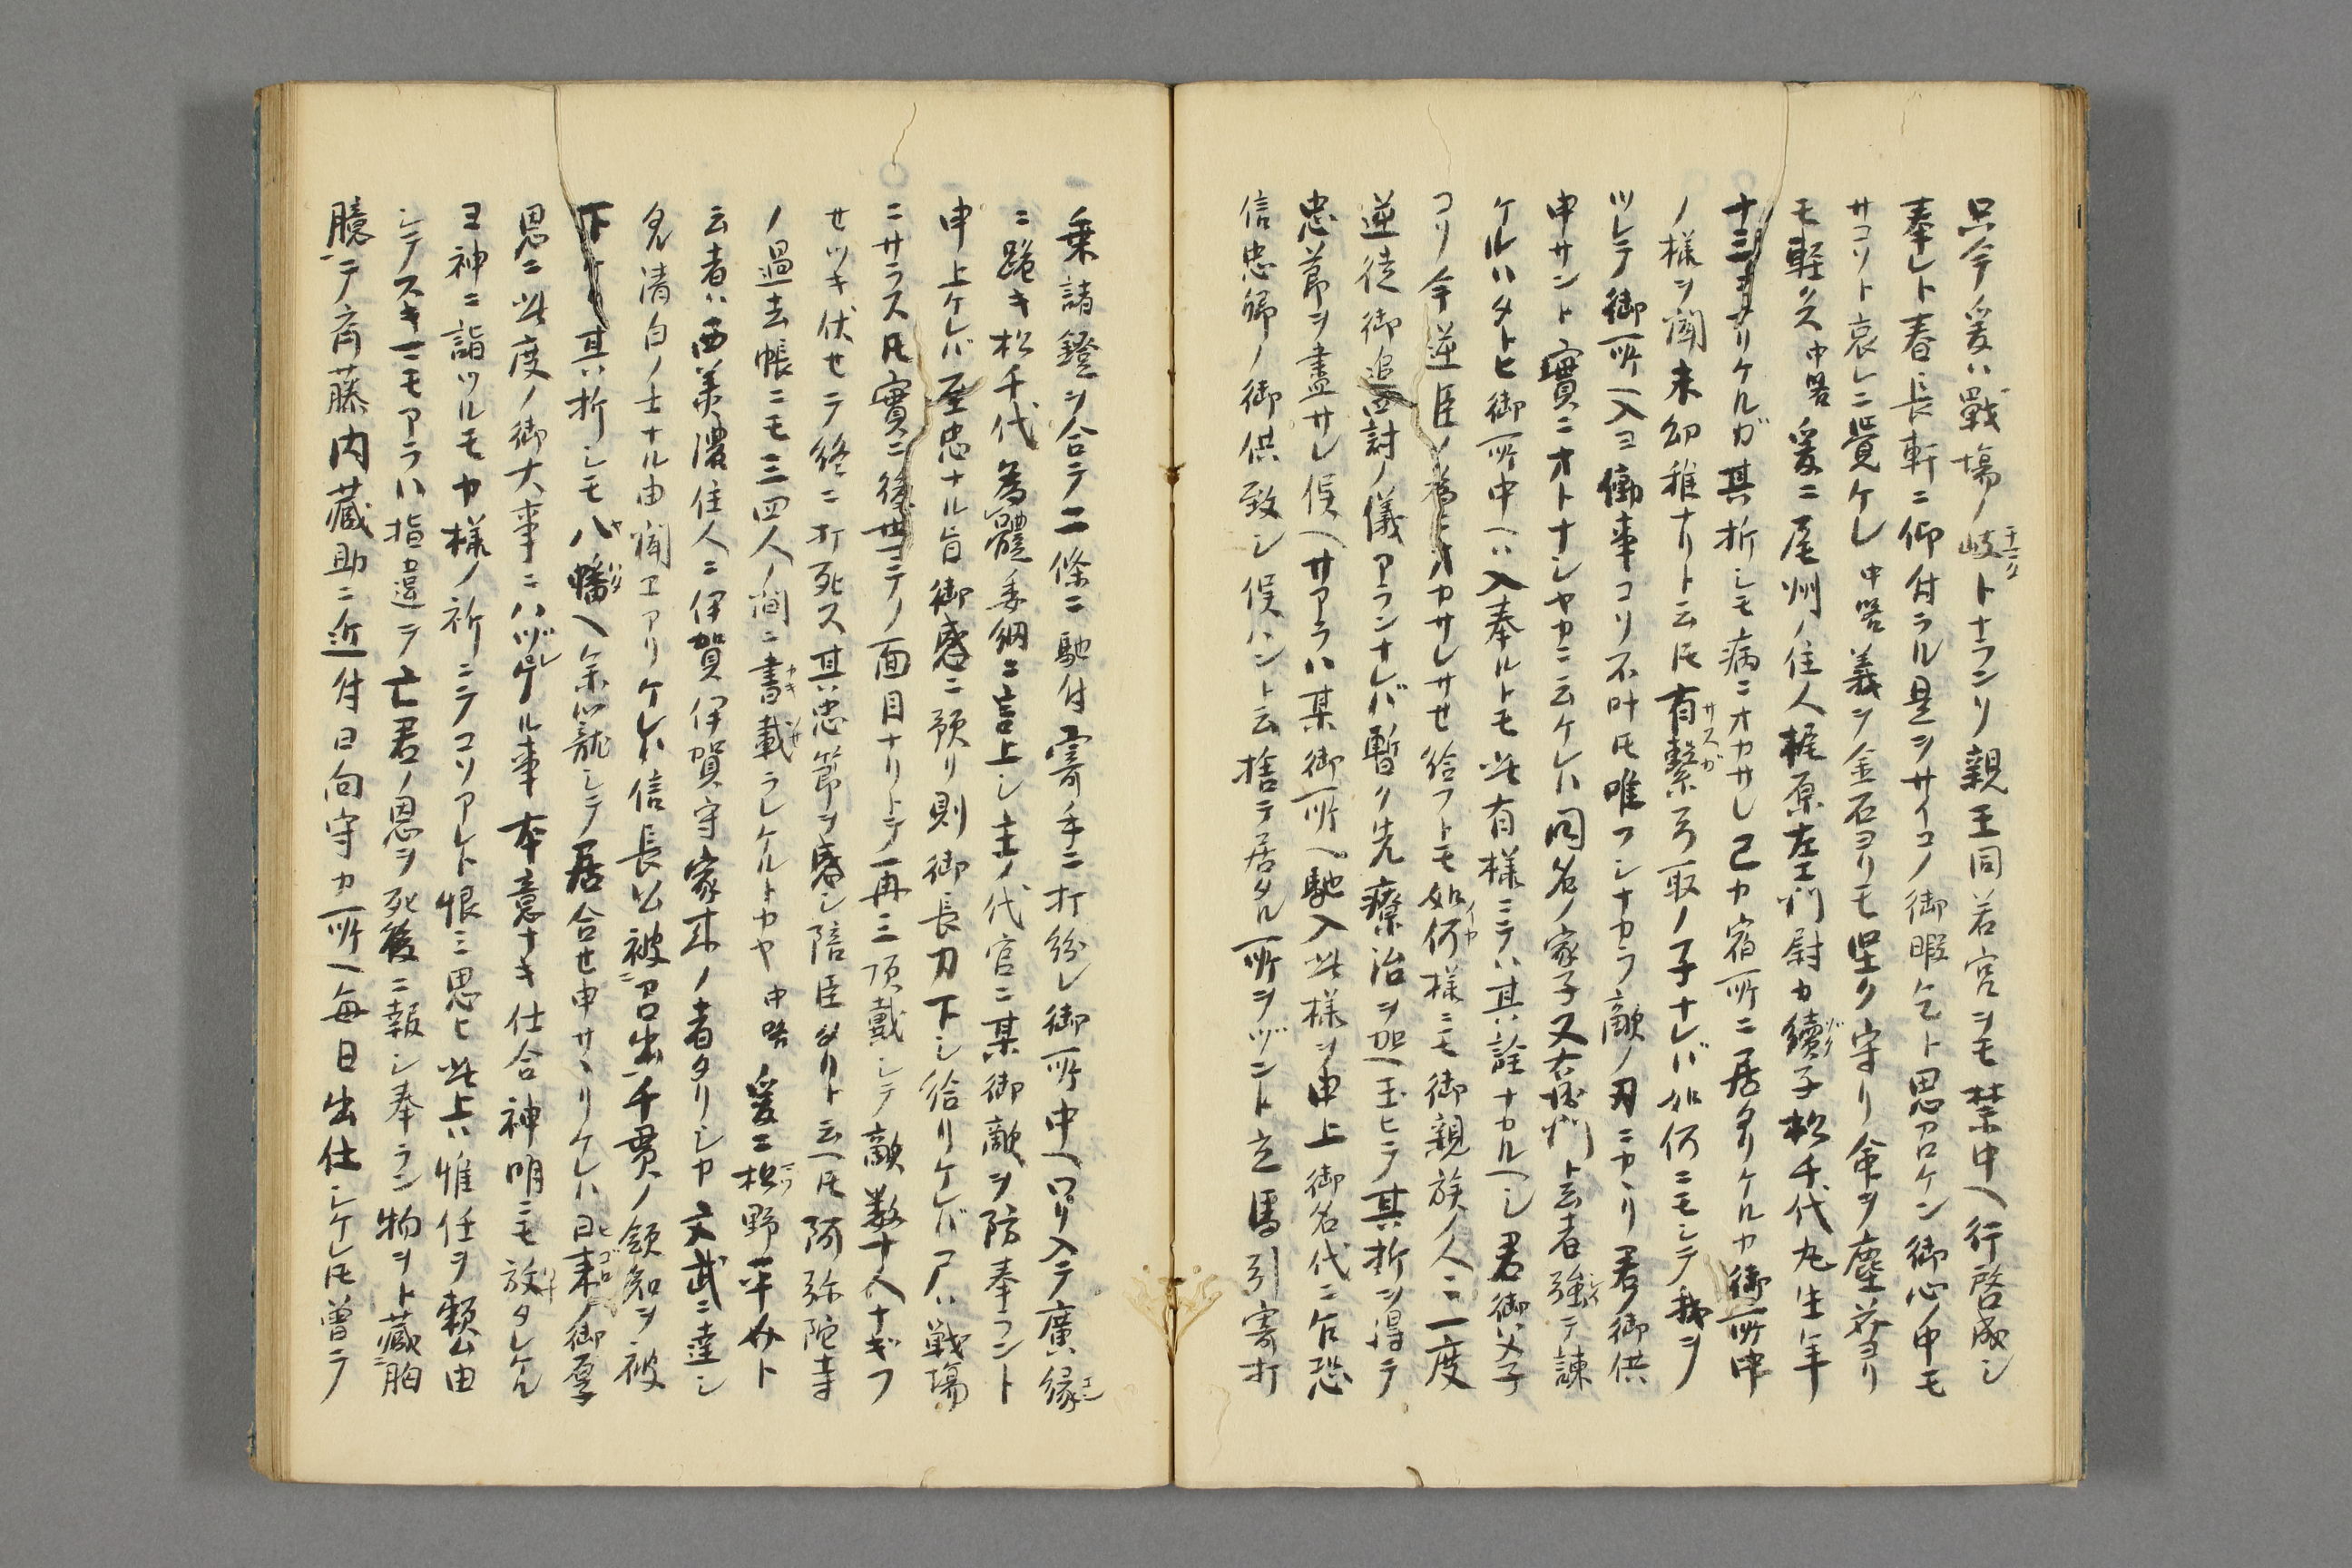 只今爰ハ戰場ノ岐トナランソ親王同若宮ヲモ禁中ヘ行啓成シ
奉レト春長軒ニ仰付ラル是ヲサイコノ御暇乞ト思召ケン御心ノ中モ
サコソト哀レニ覺ケレ中畧義ヲ金石ヨリモ堅ク守リ命ヲ塵芥ヨリ
モ軽ス中畧爰ニ尾州ノ住人梶原左エ門尉カ續子松千代丸生年
十三ナリケルガ其折シモ病ニオカサレ己カ宿所ニ居タリケルカ御所中
ノ様ヲ聞未幼稚ナリト云圧有繋弓取ノ子ナレバ如何ニモシテ我ヲ
ツレテ御所ヘ入ヨ働事コソ不叶圧唯フシナカラ敵ノ刃ニカヽリ君ノ御供
申サント實ニオトナシヤカニ云ケレハ同名ノ家子又右衛門ト云者強テ諫
ケルハタトヒ御所中ヘハ入奉ルトモ此有様ニテハ其詮ナカルヘシ君御父子
コソ今逆臣ノ為ニオカサレサセ給フトモ如何様ニモ御親族ノ人ニ一度
逆徒御追討ノ儀アランナレバ暫ク先療治ヲ加ヘ玉ヒテ其折ヲ得テ
忠節ヲ盡サレ候ヘサアラハ某御所ヘ馳入此様ヲ申上御名代ニ乍恐
信忠卿ノ御供致シ候ハント云捨テ居タル所ヲヅント立馬引寄打
乗諸鐙ヲ合テ二條ニ馳付寄手ニ打紛レ御所中ヘツリ入テ廣縁
ニ跪キ松千代為體委細ニ言上シ主ノ代官ニ某御敵ヲ防奉ラント
申上ケレバ至忠ナル旨御感ニ預リ則御長刀下シ給リケレバアハ戦場
ニサラス圧實ニ後世マテノ面目ナリトテ再三頂戴シテ敵数十人ナギフ
セツキ伏セテ終ニ打死ス其忠節ヲ感シ陪臣タリト云ヘ圧阿弥陀寺
ノ過去帳ニモ三四人ノ間ニ書載ラレケルトカヤ中畧爰ニ松野平介ト
云者ハ西美濃住人ニ伊賀伊賀守家来ノ者タリシカ文武ニ達シ
名清白ノ士ナル由聞エアリケレハ信長公被召出千貫ノ領知ヲ被
下ケリ其折シモ八幡ヘ参籠シテ居合セ申サヽリケレハ日来ノ御厚
恩ニ此度ノ御大事ニハヅレケル事本意ナキ仕合神明ニモ放タレケル
ヨ神ニ詣ツルモカ様ノ祈ニテコソアレト恨ミ思ヒ此上ハ惟任ヲ頼ム由
シテスキニモアラハ指違テ亡君ノ恩ヲ死後ニ報シ奉ラン物ヲト藏胸
臆テ斉藤内藏助ニ近付日向守カ所ヘ毎日出仕シケレ圧曽テ